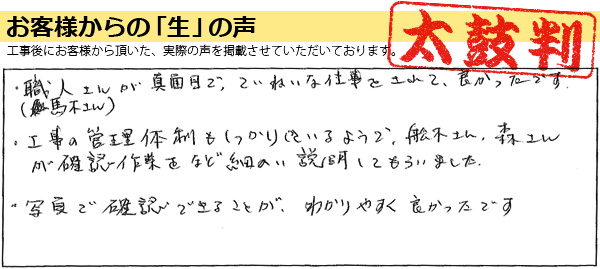 お客様からの「生」の声
工事後にお客様から頂いた、実際の声を掲載させていただいております。
太鼓判
・職人さんが真面目で、ていねいな仕事をされて、良かったです。
(馬木さん)
・工事の管理体制もしっかりしているようで、舩木さん、森さん
が確認作業をなど細かい説明してもらいました。
・写真で確認できることが、わかりやすく良かったです